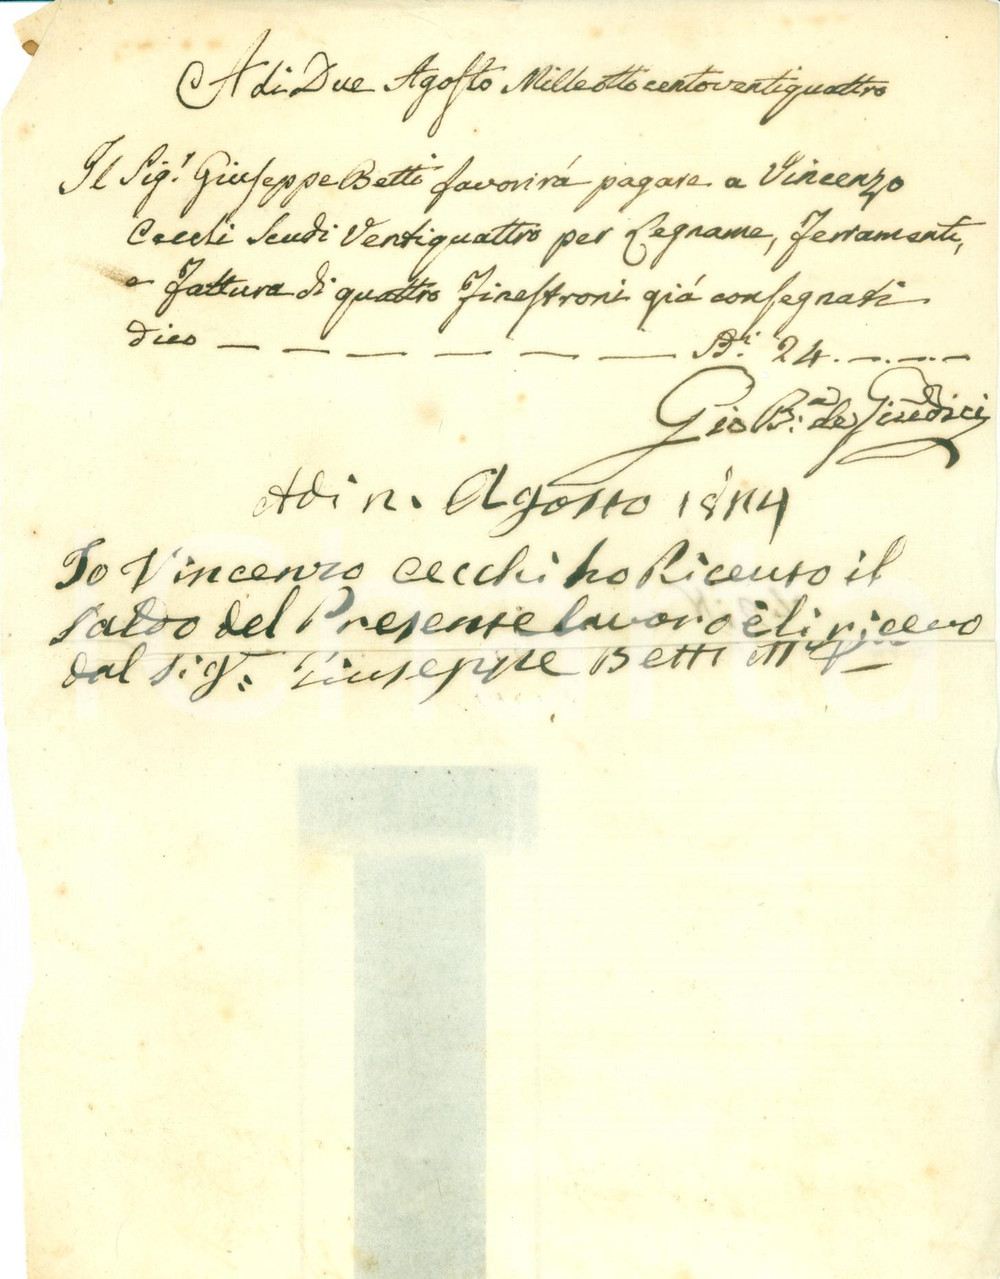 A di Due Agosto Milleottocentoventiquattro
Il Sig.r Giuseppe Betti favorirá pagare a Vincenzo
Cecchi Scudi Ventiquattro per Legname, Ferramenti,
e Fattura di quattro Finestroni giá consegnati
dico — — — — — — — 24. — . — . —
Gio B.a de Giudici
Adi 2. Agosto 1824
Io Vincenzo Cecchi ho Riceuto il
saldo del Presente lavoro è li riceuo
dal sig.r Giuseppe Betti